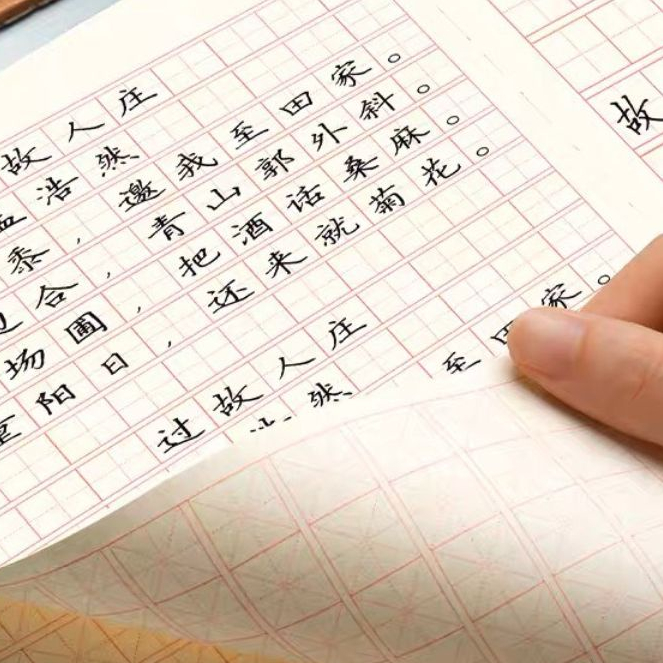 故人庄
孟浩然
黍，邀我至田家。
合，青山郭外斜。
场圃，把酒话桑麻。
重阳日，还来就菊花。
过故人庄
浩然
至田家。
故